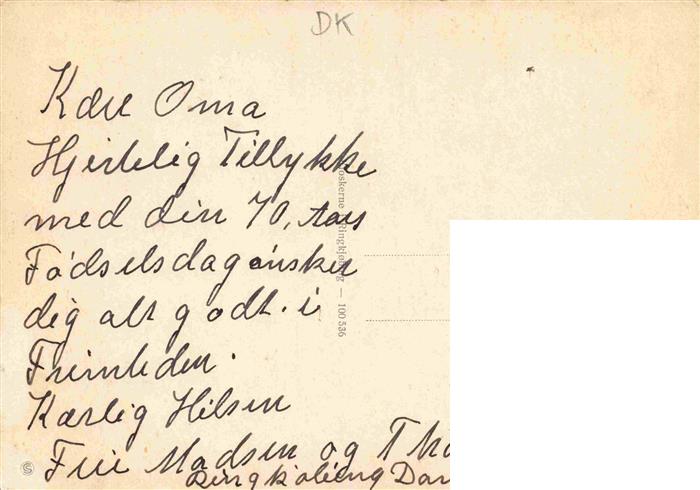 DK
Kære Oma
Hjertelig Tillykke
med din 70, Aars
Födselsdag önsker
dig alt godt. i
Fremteden.
Kærlig Hilsen
Madsen og
Ringkøbing
Ringkjøbing — 100 536